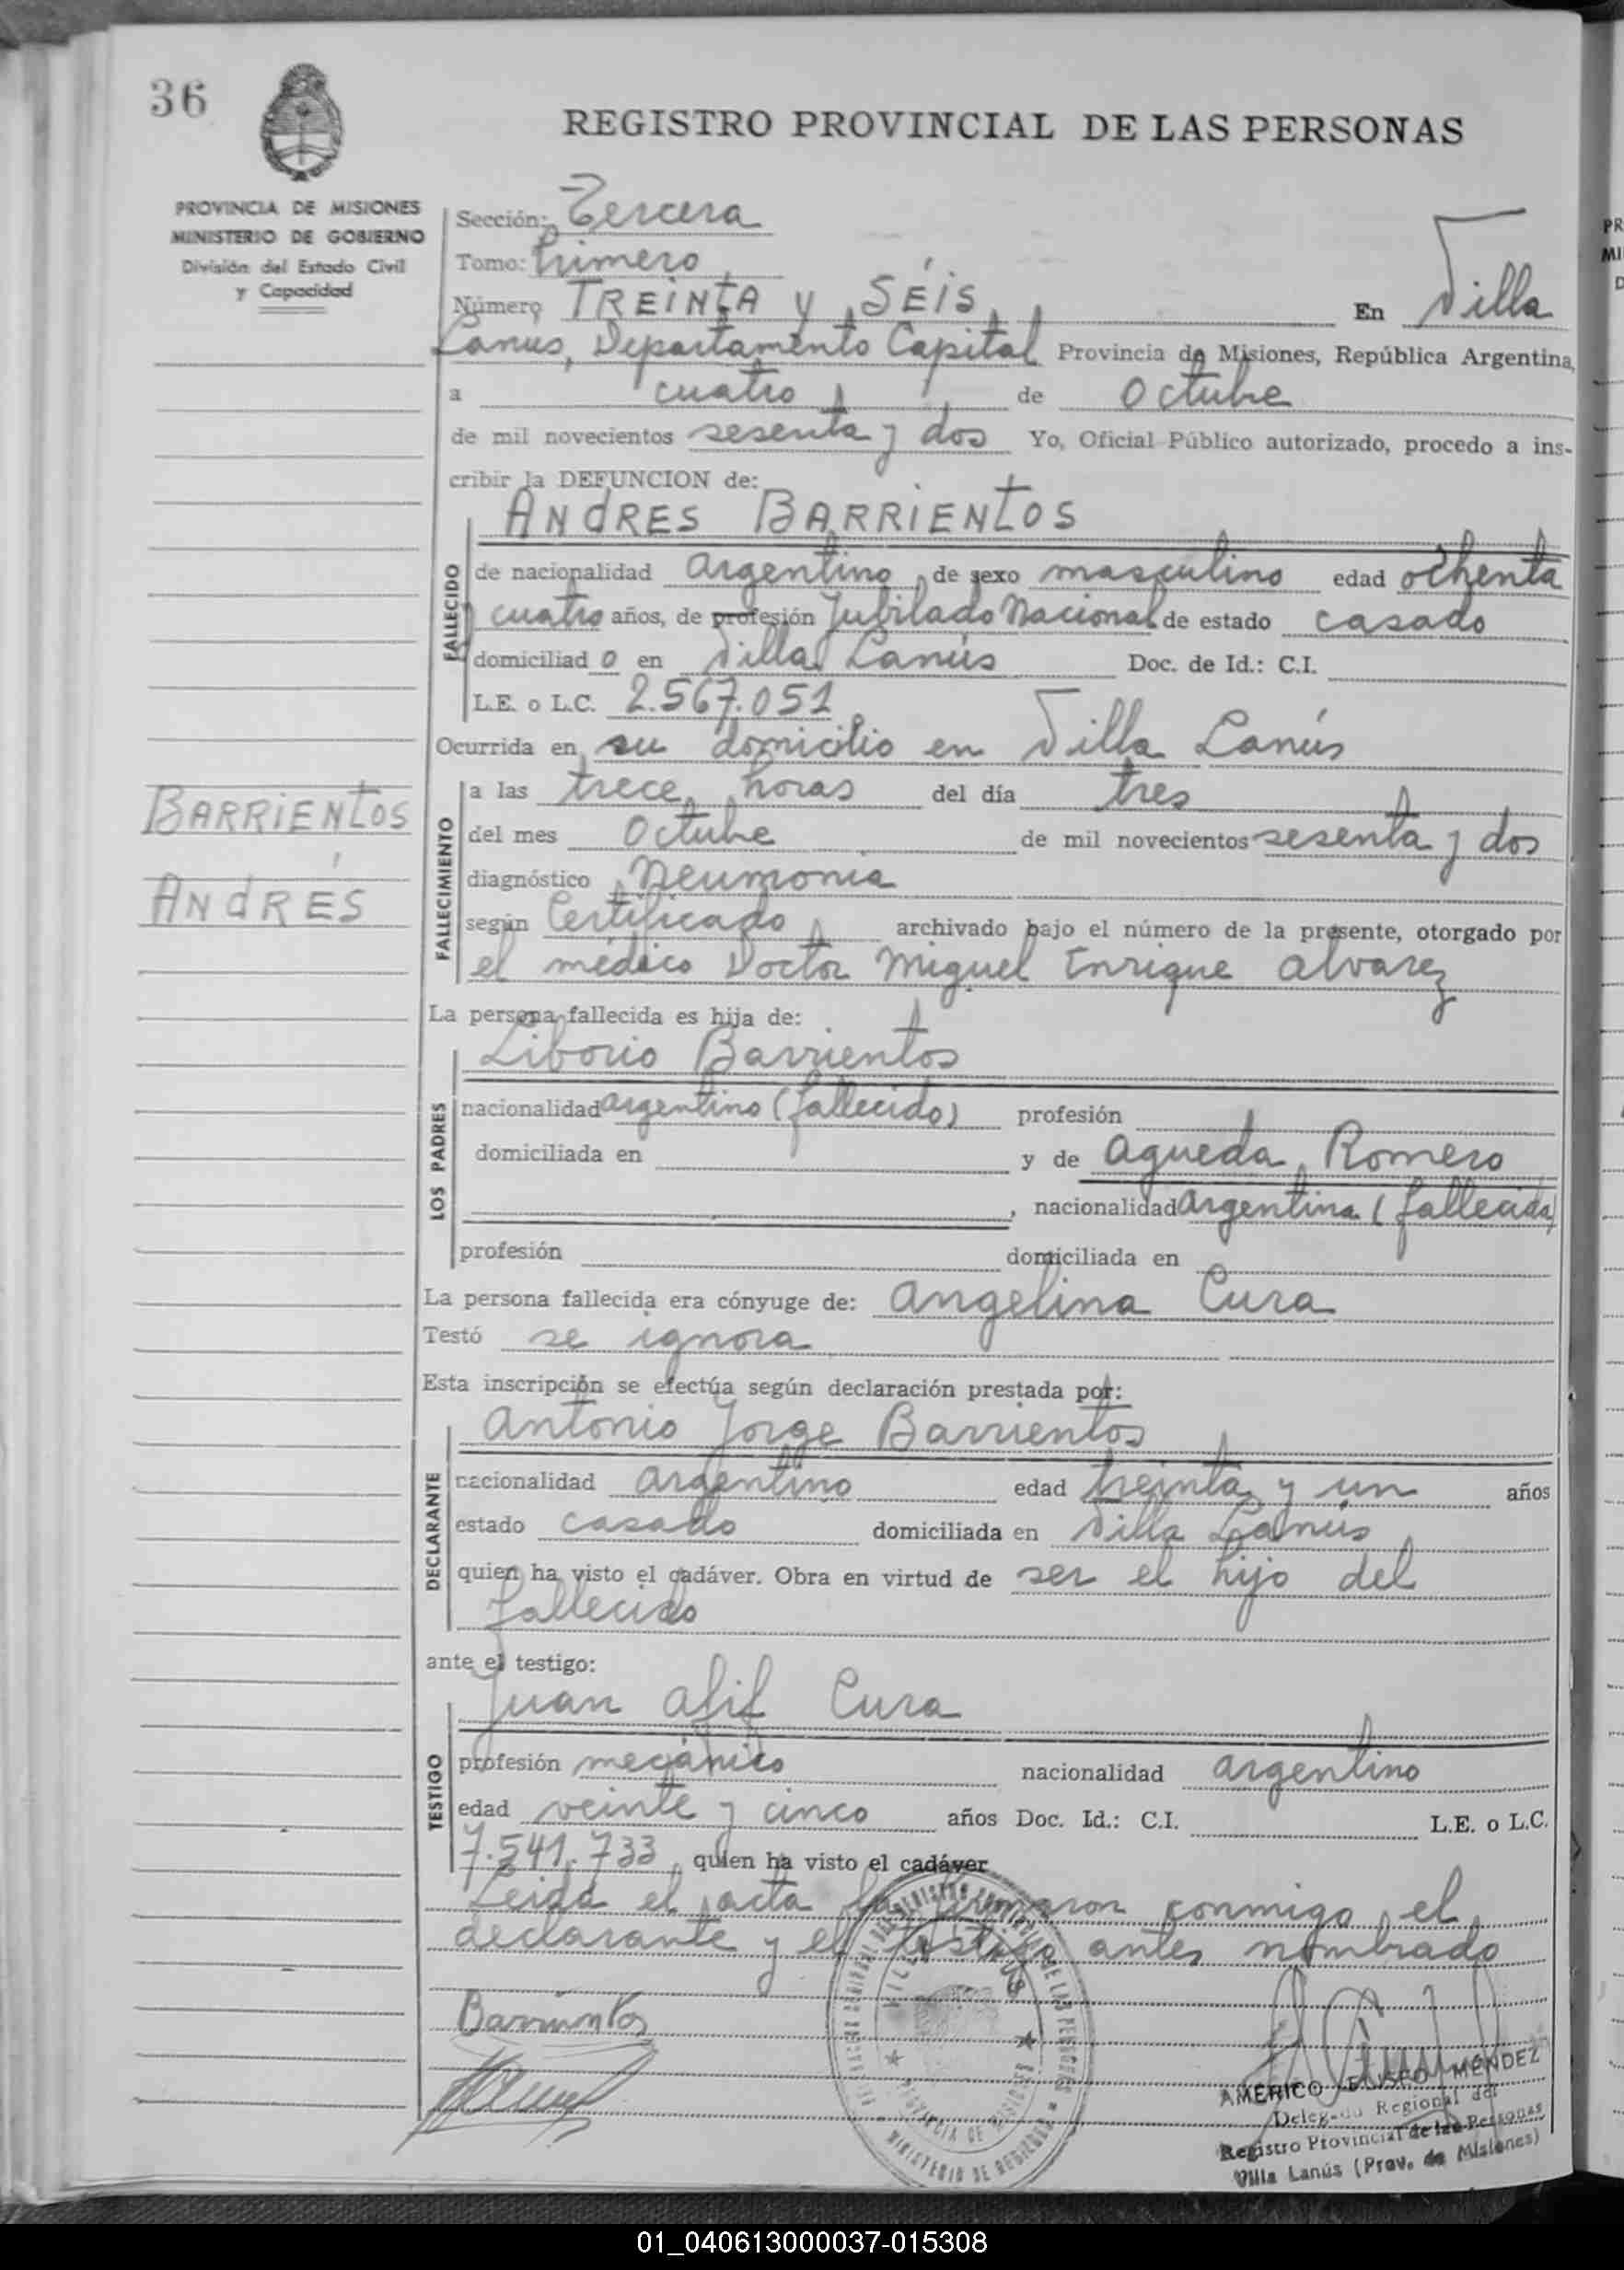 36
REGISTRO PROVINCIAL DE LAS PERSONAS
PROVINCIA DE MISIONES
MINISTERIO DE GOBIERNO
División del Estado Civil
y Capacidad
Sección: Tercera
Tomo: Primero
Número TREINTA y SÉIS En Villa
Lanus, Departamento Capital Provincia de Misiones, República Argentina,
a cuatro de Octubre
de mil novecientos sesenta y dos Yo, Oficial Público autorizado, procedo a ins-
cribir la DEFUNCION de:
ANDRES BARRIENTOS
FALLECIDO
de nacionalidad argentino, de sexo masculino edad ochenta
y cuatro años, de profesión Jubilado Nacional de estado casado
domiciliado en Villa Lanús Doc. de Id.: C.I.
L.E. o L.C. 2.567.051
Ocurrida en su domicilio en Villa Lanús
BARRIENTOS
ANDRÉS
FALLECIMIENTO
a las trece horas del día tres
del mes Octubre de mil novecientos sesenta y dos
diagnóstico Neumonia
según Certificado archivado bajo el número de la presente, otorgado por
el médico Doctor Miguel Enrique Alvarez
La persona fallecida es hija de:
Liborio Barrientos
LOS PADRES
nacionalidad argentino (fallecido) profesión
domiciliada en y de Agueda Romero
, nacionalidad argentina (fallecida)
profesión domiciliada en
La persona fallecida era cónyuge de: Angelina Cura
Testó se ignora
Esta inscripción se efectúa según declaración prestada por:
Antonio Jorge Barrientos
DECLARANTE
nacionalidad argentino edad treinta y un años
estado casado domiciliada en Villa Lanús
quien ha visto el cadáver. Obra en virtud de ser el hijo del
fallecido
ante el testigo:
Juan Afif Cura
TESTIGO
profesión mecánico nacionalidad argentino
edad veinte y cinco años Doc. Id.: C.I. L.E. o L.C.
7.541.733, quien ha visto el cadáver
Leida el acta la firmaron conmigo, el
declarante y el testigo antes nombrado
Barrientos
AMERICO ELISEO MÉNDEZ
Delegado Regional del
Registro Provincial de las Personas
Villa Lanús (Prov. de Misiones)
PROVINCIA DE MISIONES
01_040613000037-015308